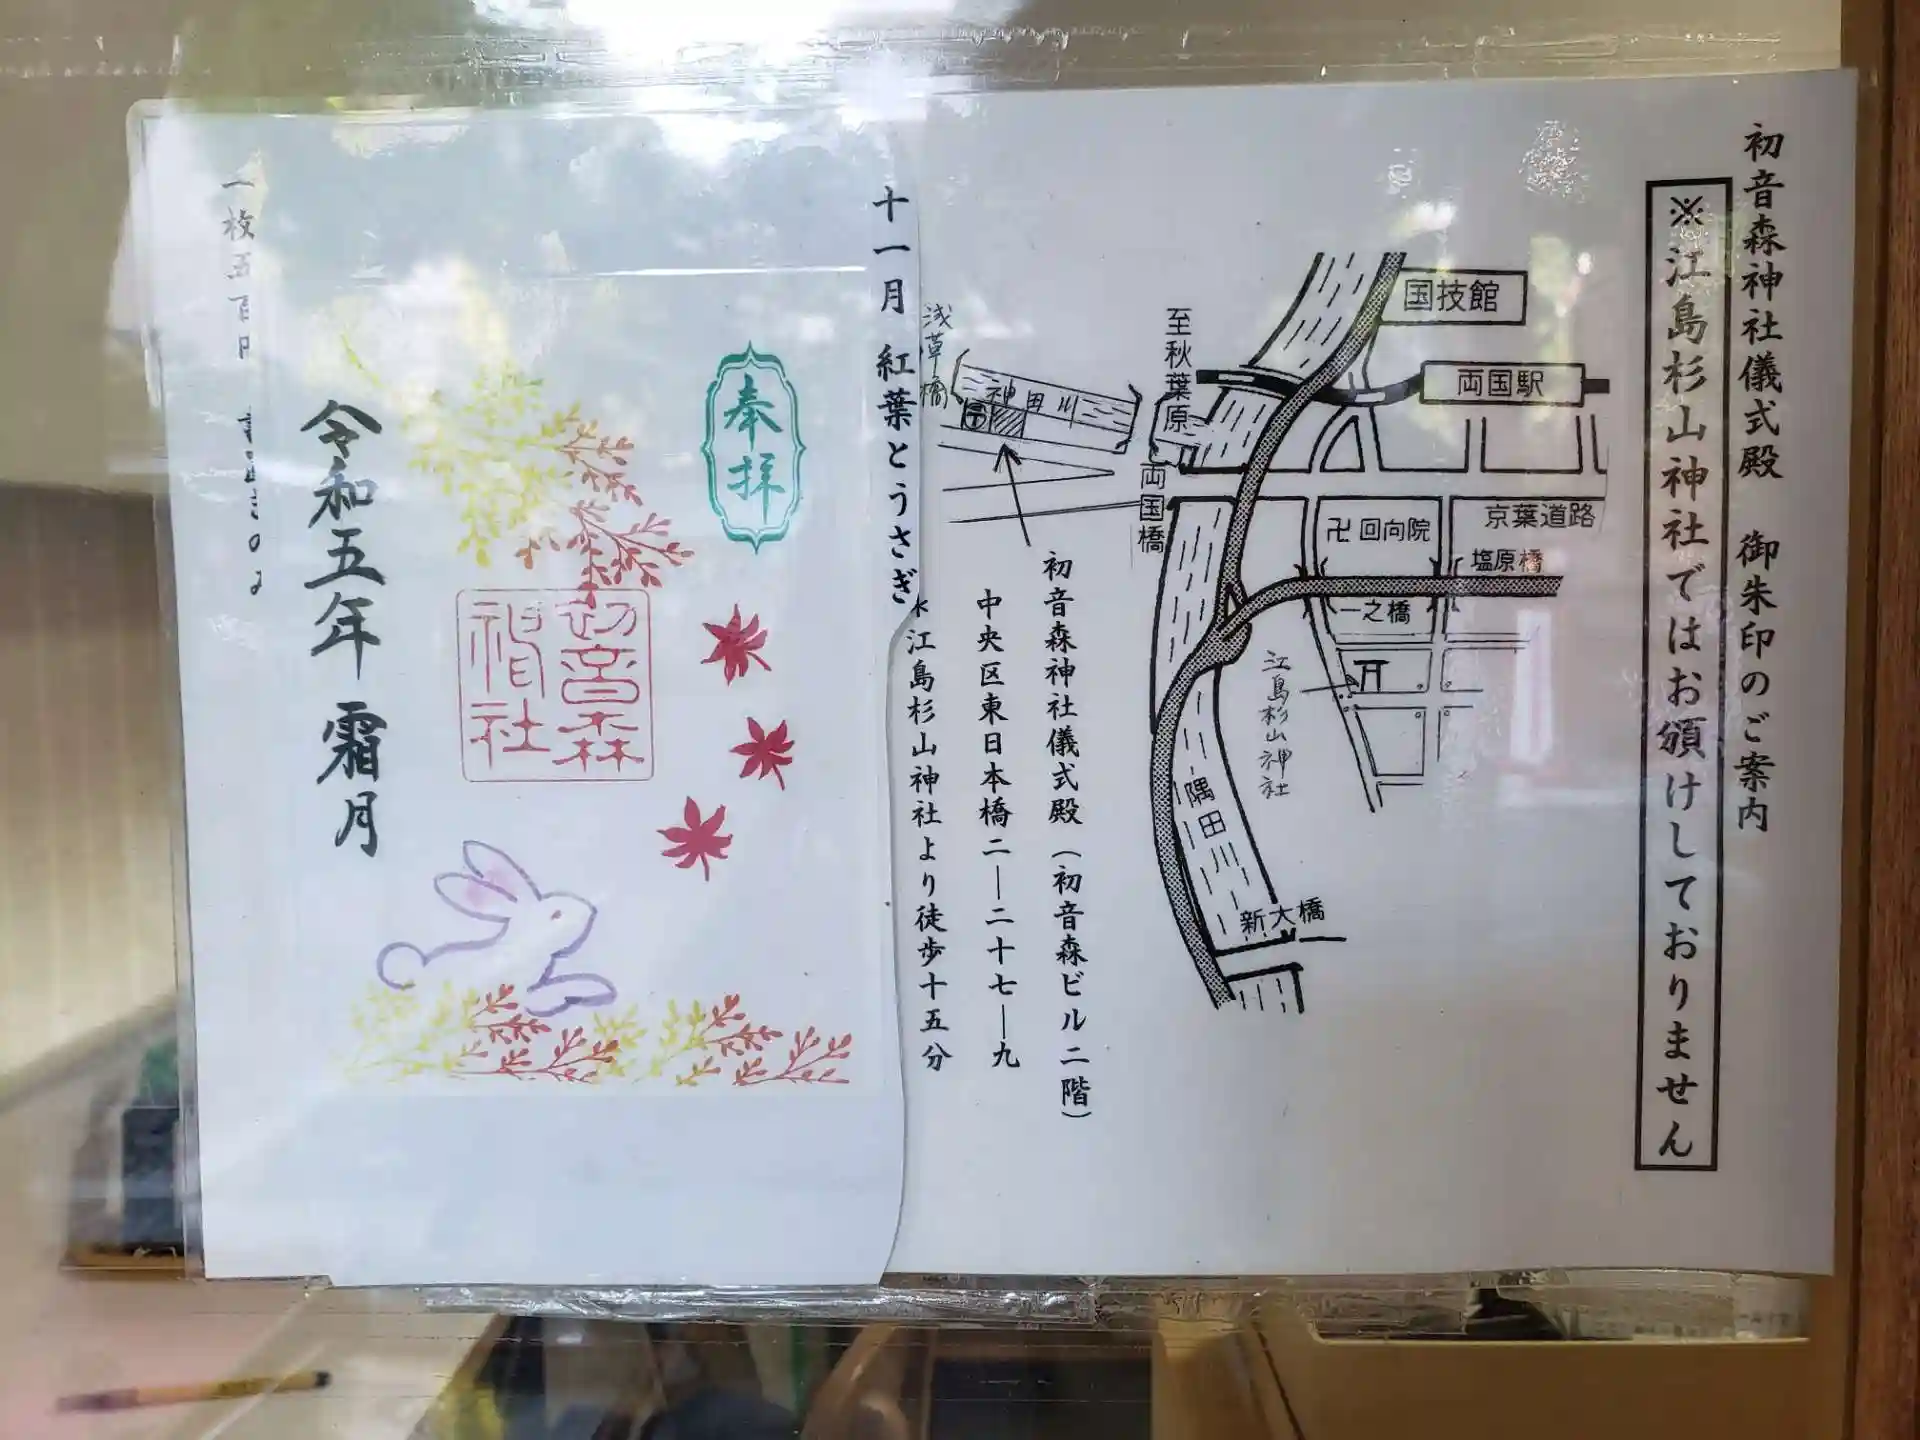 初音森神社儀式殿 御朱印のご案内
※江島杉山神社ではお頒けしておりません
国技館
両国駅
京葉道路
卍回向院
塩原橋
一之橋
江島杉山神社
隅田川
新大橋
至秋葉原
両国橋
神田川
浅草橋
初音森神社儀式殿(初音森ビル二階)
中央区東日本橋二―二十七―九
江島杉山神社より徒歩十五分
十一月 紅葉とうさぎ
奉拝
初音森
神社
令和五年 霜月
一枚五百円